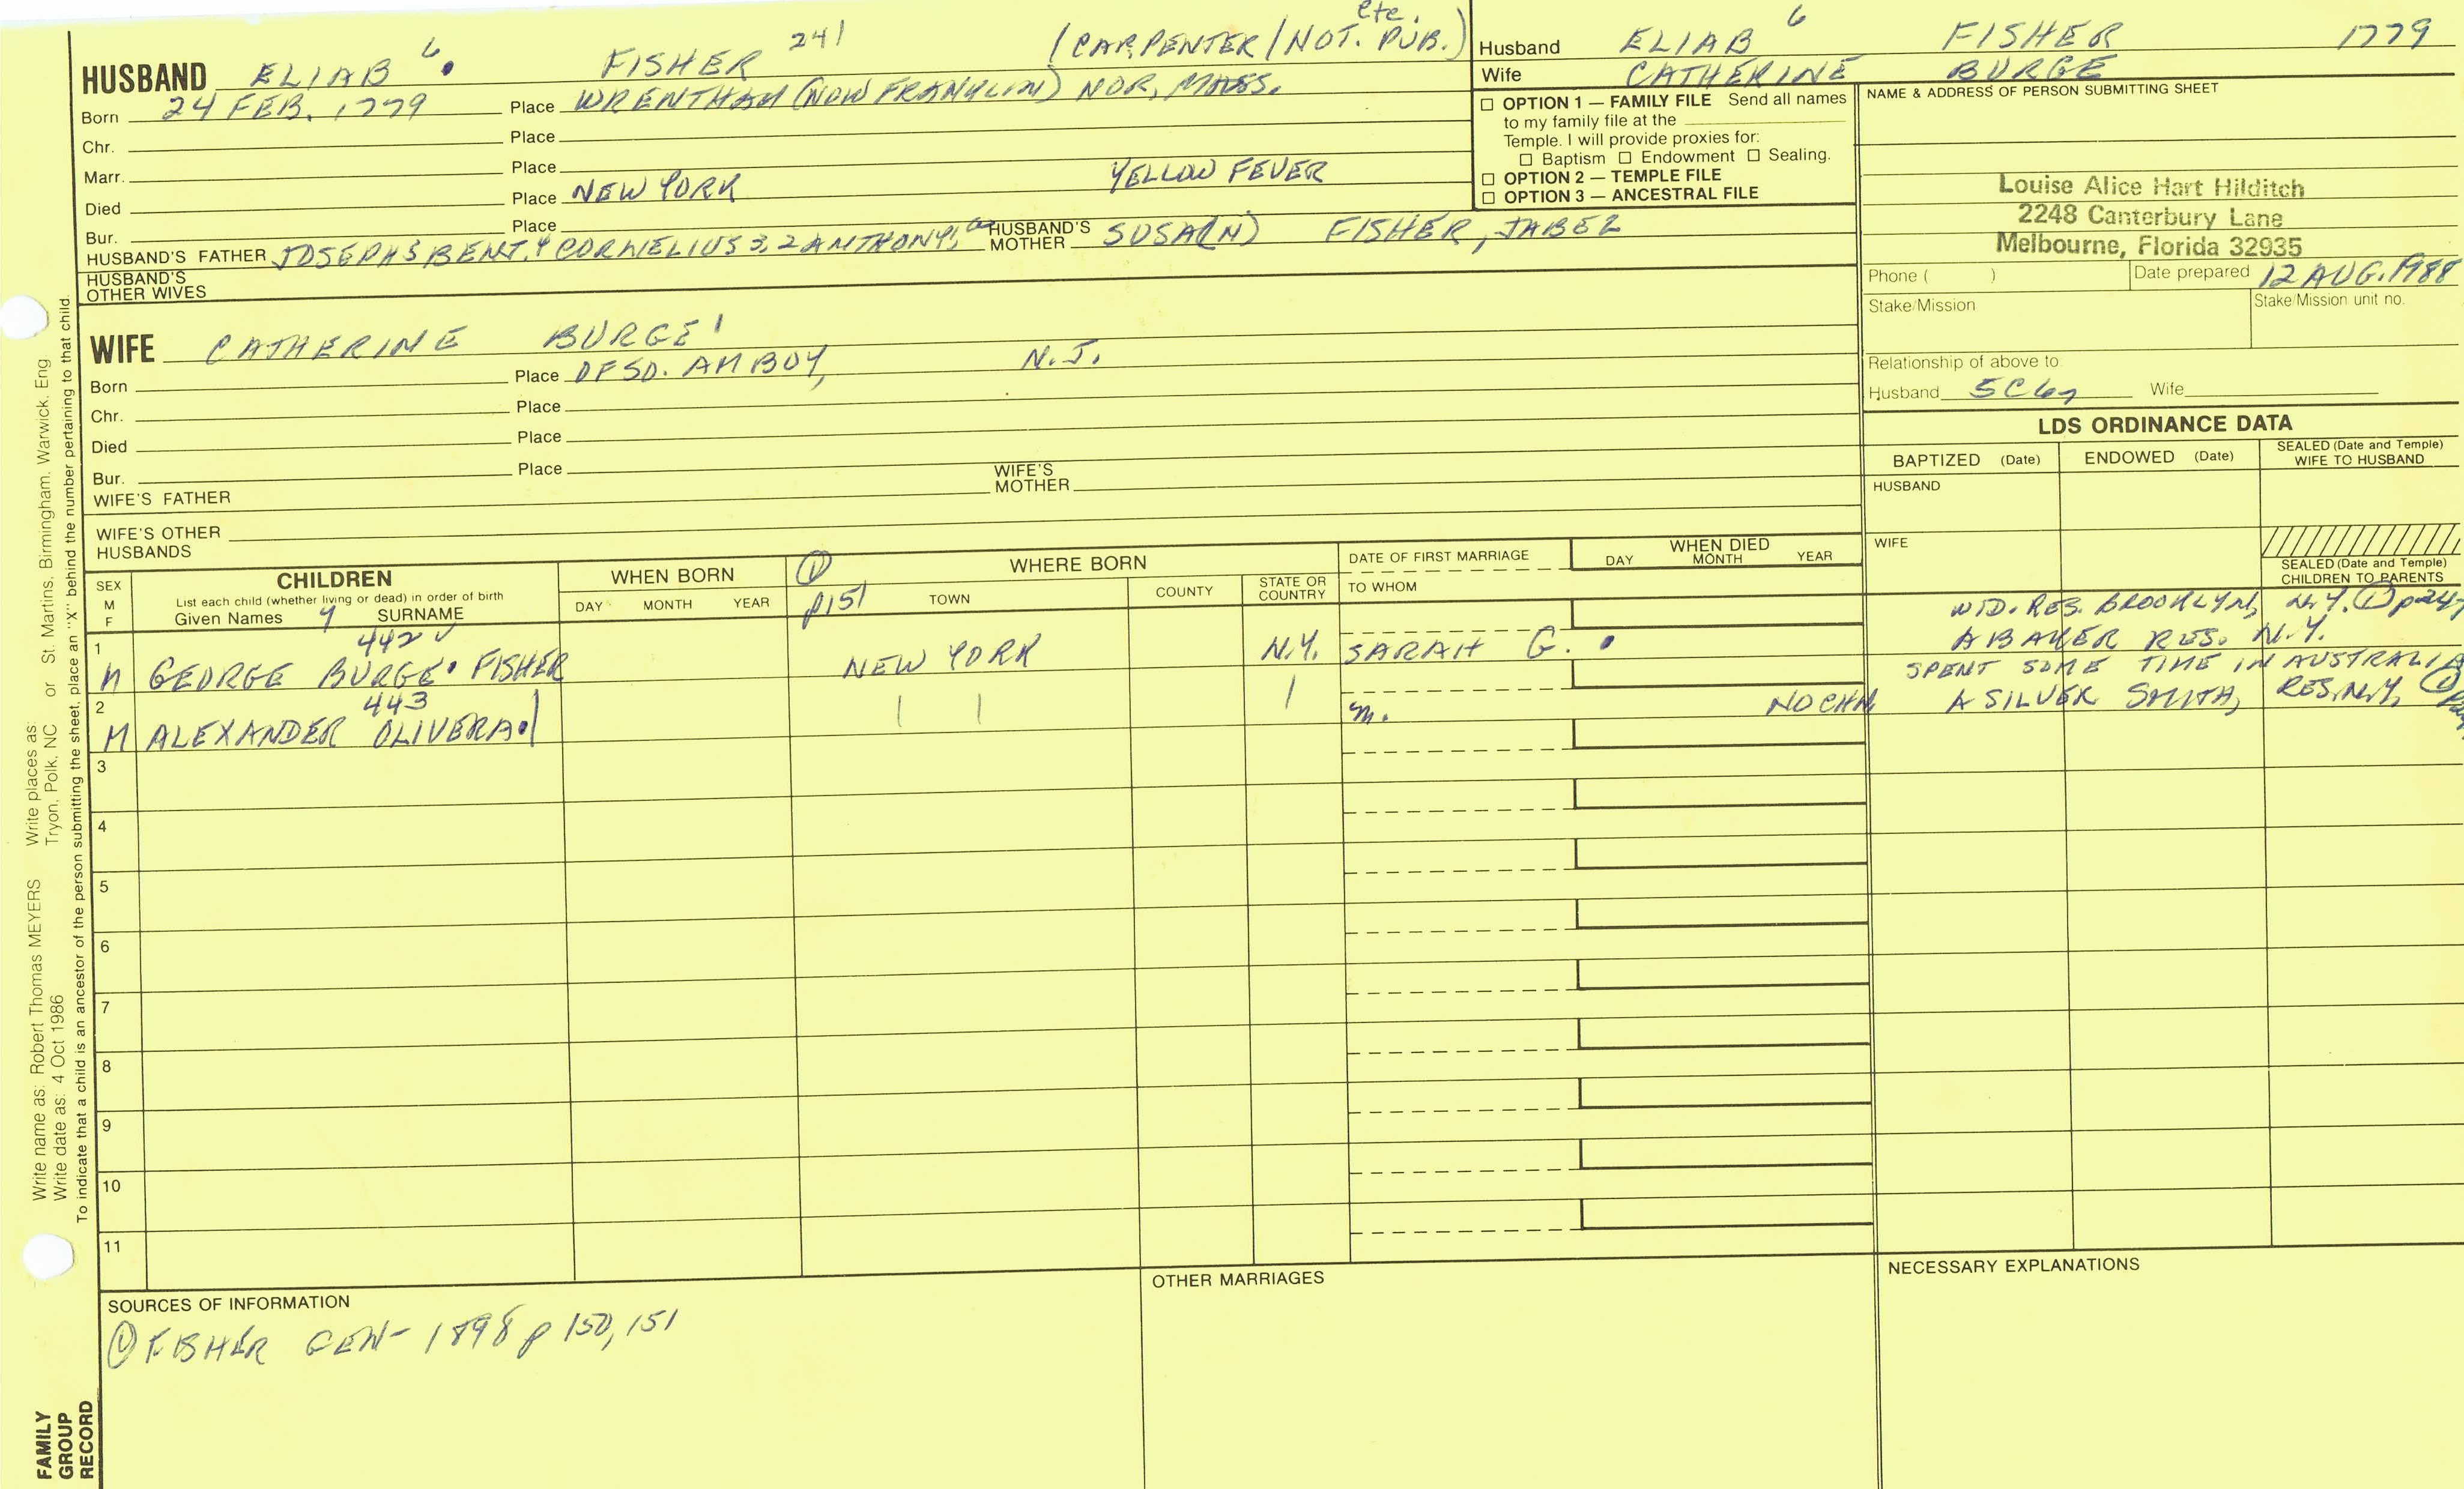 HUSBAND ELIAB 6. FISHER 241 (CARPENTER/NOT. PUB.) etc.
Born 24 FEB. 1779 Place WRENTHAM (NOW FRANKLIN) NOR, MASS.
Chr. Place
Marr. Place
Died Place NEW YORK YELLOW FEVER
Bur. Place
HUSBAND'S FATHER JOSEPH 5 BENJ. 4 CORNELIUS 3, 2 ANTHONY 1, HUSBAND'S MOTHER SUSA(N) FISHER, JABEZ
HUSBAND'S OTHER WIVES
WIFE CATHERINE BURGE 1
Born Place OF SO. AMBOY, N.J.
Chr. Place
Died Place
Bur. Place
WIFE'S FATHER WIFE'S MOTHER
WIFE'S OTHER HUSBANDS
Husband ELIAB 6 FISHER 1779
Wife CATHERINE BURGE
☐ OPTION 1 — FAMILY FILE Send all names
to my family file at the
Temple. I will provide proxies for:
☐ Baptism ☐ Endowment ☐ Sealing.
☐ OPTION 2 — TEMPLE FILE
☐ OPTION 3 — ANCESTRAL FILE
NAME & ADDRESS OF PERSON SUBMITTING SHEET
Louise Alice Hart Hilditch
2248 Canterbury Lane
Melbourne, Florida 32935
Phone ( ) Date prepared 12 AUG. 1988
Stake/Mission Stake/Mission unit no.
Relationship of above to
Husband 5C6 Wife
LDS ORDINANCE DATA
BAPTIZED (Date) ENDOWED (Date) SEALED (Date and Temple) WIFE TO HUSBAND
HUSBAND
WIFE
SEALED (Date and Temple)
CHILDREN TO PARENTS
SEX M F
CHILDREN
List each child (whether living or dead) in order of birth
Given Names 7 SURNAME
WHEN BORN
DAY MONTH YEAR
① p151
WHERE BORN
TOWN COUNTY STATE OR COUNTRY
DATE OF FIRST MARRIAGE
TO WHOM
WHEN DIED
DAY MONTH YEAR
WID. RES. BROOKLYN, N.Y. ① p247
1 442 ✓ A BAKER RES. N.Y.
M GEORGE BURGE FISHER NEW YORK N.Y. SARAH G. SPENT SOME TIME IN AUSTRALIA
2 443 NO CHN A SILVER SMITH, RES. N.Y. ①
M ALEXANDER OLIVER m.
3
4
5
6
7
8
9
10
11
SOURCES OF INFORMATION
① FISHER GEN- 1898 p 150, 151
OTHER MARRIAGES
NECESSARY EXPLANATIONS
Write name as: Robert Thomas MEYERS Write places as:
Write date as: 4 Oct 1986 Tryon, Polk, NC or St. Martins, Birmingham, Warwick, Eng
To indicate that a child is an ancestor of the person submitting the sheet, place an "X" behind the number pertaining to that child.
FAMILY
GROUP
RECORD